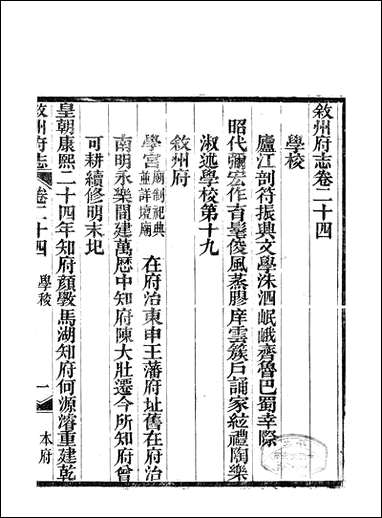 敘州府志卷二十四
學校
廬江剖符振興文學洙泗岷峨齊魯巴蜀幸際
昭代彌宏作育髦俊風蒸膠庠雲簇戶誦家絃禮陶樂
淑述學校第十九
敘州府
學宮廟制祀典並詳壇廟在府治東申王藩府址舊在府治
南明永樂間建萬歷中知府陳大壯遷今所知府曾
可耕續修明末圮
皇朝康熙二十四年知府顏斆馬湖知府何源濬重建乾
敘州府志 卷二十四 學校 一 本府